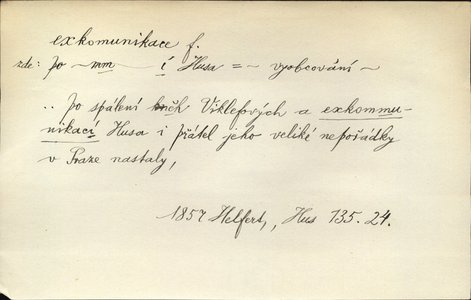 exkomunikace f.
zde: po –mm– í Husa = – vyobcování –
.. Po spálení kněh Viklefových a exkommu-
nikací Husa i přátel jeho veliké nepořádky
v Praze nastaly,
1857 Helfert, Hus 135. 24.